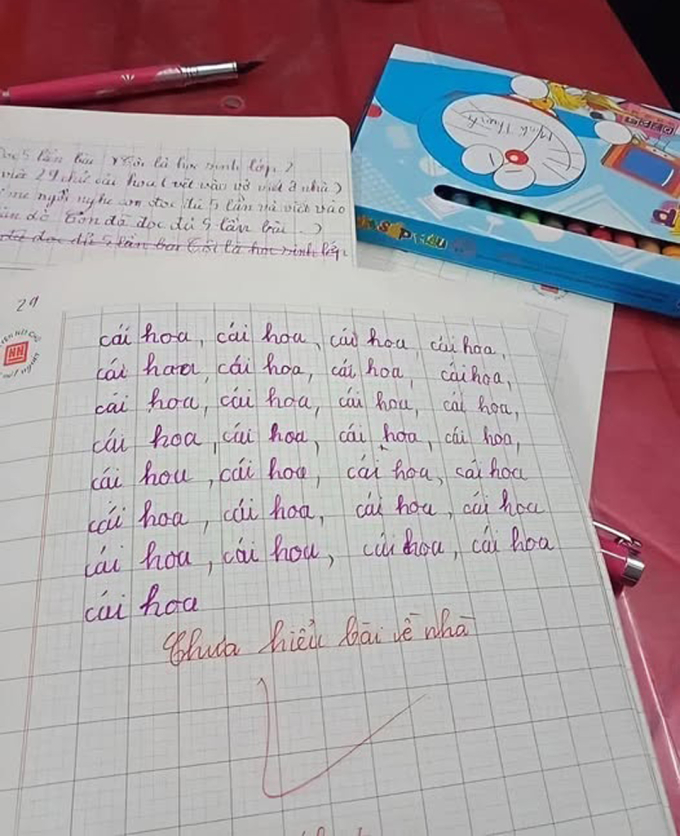 5 lần bài Tôi là học sinh lớp 2
viết 29 chữ cái hoa (viết vào vở viết ở nhà)
mẹ ngồi nghe con đọc đủ 5 lần và viết vào
dò Con đã đọc đủ 5 lần bài
đã đọc đủ 5 lần bài Tôi là học sinh lớp
Minh Thịnh
SÁP MÀU
29
HH
cái hoa, cái hoa, cái hoa, cái hoa,
cái hoa, cái hoa, cái hoa, cái hoa,
cái hoa, cái hoa, cái hoa, cái hoa,
cái hoa, cái hoa, cái hoa, cái hoa,
cái hoa, cái hoa, cái hoa, cái hoa
cái hoa, cái hoa, cái hoa, cái hoa
cái hoa, cái hoa, cái hoa, cái hoa
cái hoa
Chưa hiểu bài về nhà